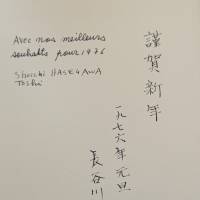 Avec nos meilleurs
souhaits pour 1976
Shoichi HASEGAWA
Toshi
謹賀新年
一九七六年元旦
長谷川